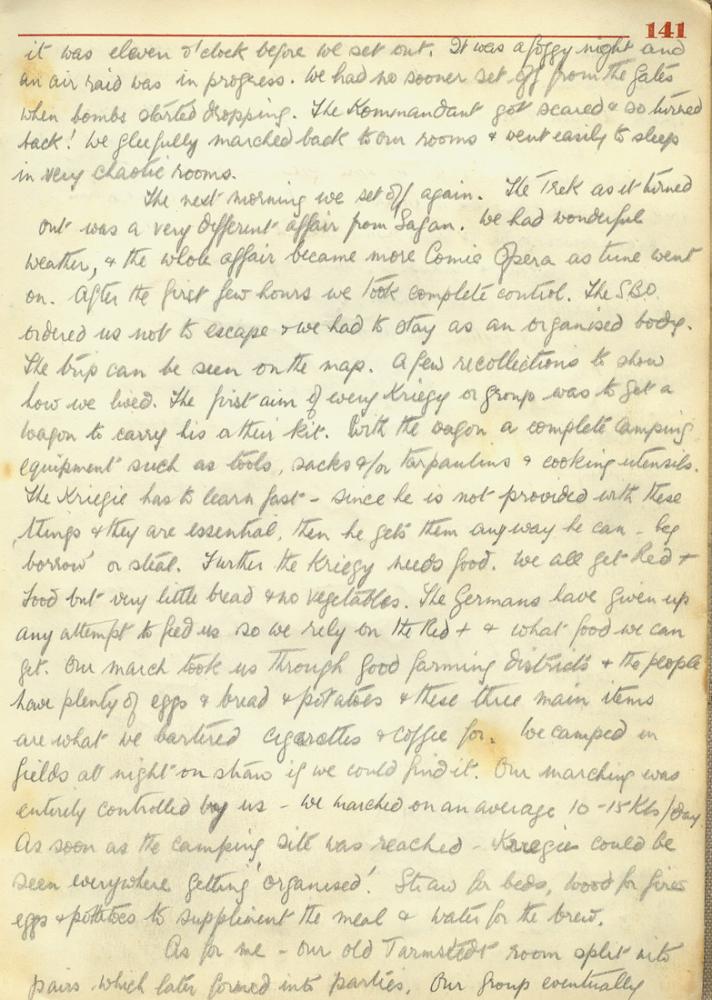 141
it was eleven o'clock before we set out. It was a foggy night and
an air raid was in progress. We had no sooner set off from the gates
when bombs started dropping. The Kommandant got scared & so turned
back! We gleefully marched back to our rooms & went easily to sleep
in very chaotic rooms.
The next morning we set off again. The Trek as it turned
out was a very different affair from Sagan. We had wonderful
weather, & the whole affair became more Comic Opera as time went
on. After the first few hours we took complete control. The SBO.
ordered us not to escape & we had to stay as an organised body.
The trip can be seen on the map. A few recollections to show
how we lived. The first aim of every Kriegy or group was to get a
wagon to carry his or their kit. With the wagon a complete camping
equipment such as tools, sacks &/or tarpaulins & cooking utensils.
The Kriegie has to learn fast - since he is not provided with these
things & they are essential, then he gets them anyway he can - beg
borrow or steal. Further the Kriegy needs food. We all get Red +
food but very little bread & no vegetables. The Germans have given up
any attempt to feed us so we rely on the Red + & what food we can
get. Our march took us through good farming districts & the people
have plenty of eggs & bread & potatoes & these three main items
are what we bartered cigarettes & coffee for. We camped in
fields at night on straw if we could find it. Our marching was
entirely controlled by us - we marched on an average 10-15 Kls/day
As soon as the camping site was reached - Kriegies could be
seen everywhere getting 'organised'. Straw for beds, wood for fires
eggs & potatoes to suppliment the meal & water for the brew.
As for me - our old Tarmstedt room split into
pairs which later formed into parties. Our group eventually